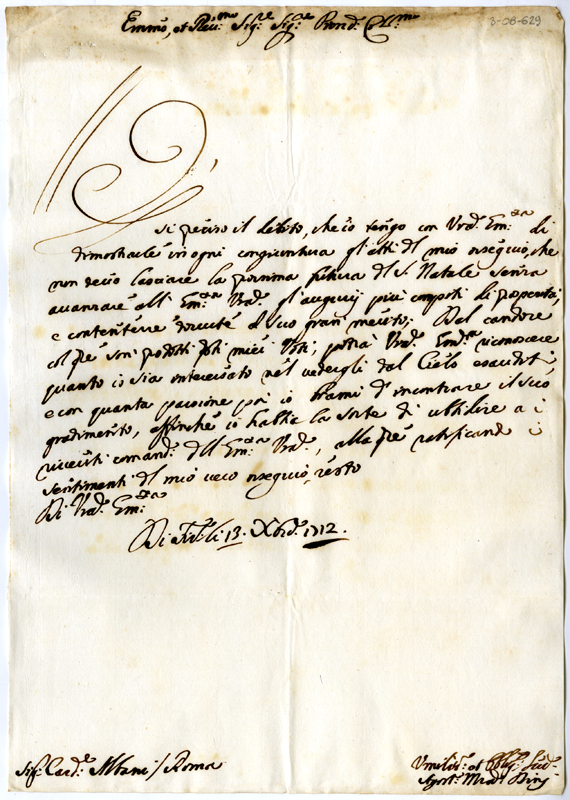 Emmo, et Reu:mo Sig:re Sig:re Pron: Coll:mo
3-08-629
È
sì preciso il debito, che io tengo con Vrã. Em:za di
dimostrarle in ogni congiuntura gl'atti del mio ossequio, che
non deuo lasciare la prossima futura del S. Natale senza
auanzare all' Em:za Vrã. gl'augurij più composti di prosperità,
e contentezze douute al suo gran merito. Dal candore
col q̃le son prodotti q̃sti miei Voti, potrà Vrã. Em:za riconoscere
quanto io sia interessato nel uedergli dal Cielo esauditi;
e con quanta passione poi io brami d'incontrare il suo
gradimento, affinche io habbia la sorte di ubbidire a i
riueriti comandi dell' Em:za Vrã., alla q̃le ratificando i
sentimenti del mio uero ossequio, resto
Di Vrã. Em:za
Di 13. Xbre. 1712.
Sig: Card:e Albani / Roma
Vmilis:o et Obblig: Seru.